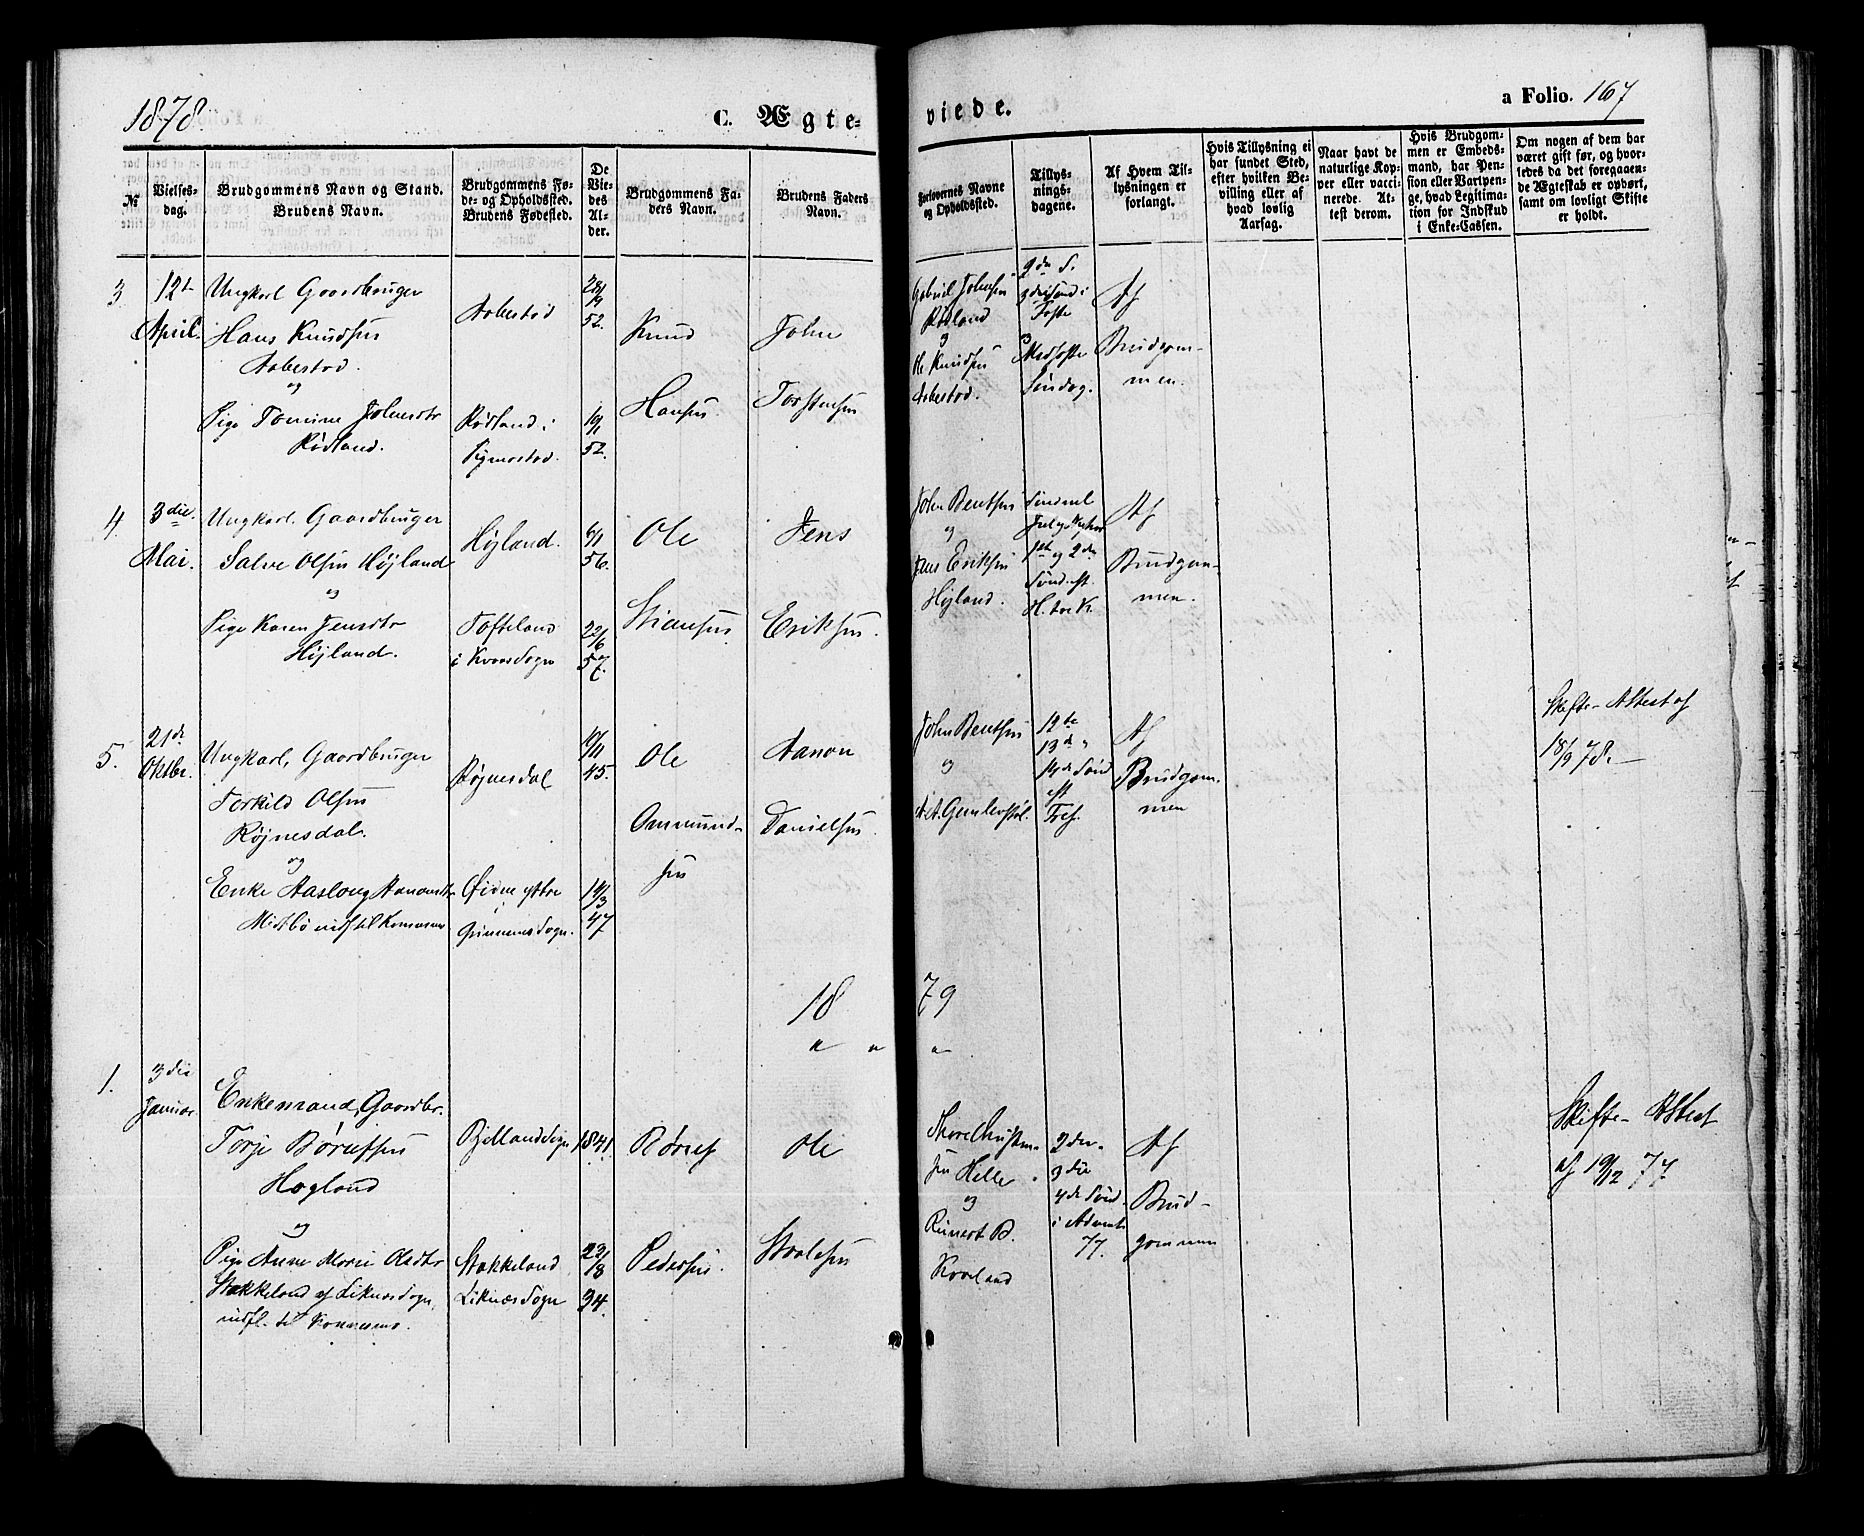 1878.
C. Ægte-
viede.
a Folio. 167
№
Vielses-
dag.
Brudgommens Navn og Stand.
Brudens Navn.
Brudgommens Fø-
de- og Opholdssted.
Brudens Fødested.
De
Vie-
des
Al-
der.
Brudgommens Fa-
ders Navn.
Brudens Faders
Navn.
Forlovernes Navne
og Opholdssted.
Tillys-
nings-
dagene.
Af Hvem Til-
lysningen er
forlangt.
Hvis Tillysning ei
har fundet Sted,
efter hvilken Be-
villing eller af
hvad lovlig
Aarsag.
Naar havt de
naturlige Kop-
per eller vacci-
nerede. At-
test derom.
Hvis Brudgom-
men er Embeds-
mand, har Pen-
sion eller Vartpen-
ge, hvad Legitima-
tion for Indskud
i Enke-Cassen.
Om nogen af dem har
været gift før, og hvor-
ledes da det foregaaen-
de Ægteskab er ophørt,
samt om lovligt Skifte
er holdt.
3
12te
April.
Ungkarl Gaardbruger
Hans Knudsen
Aabestad.
og
Pige Tomine Johnsdtr
Rødland.
Aabestad
Rødland i
Bjelland
28/9
52.
19/1
52.
Knud
Hansen.
John
Torstensen
Gabriel Johnsen
Rødland
og
Ole Knudsen
Aabestad.
2den S.
3die Sønd i
Faste
Midfaste
Søndag.
Af
Brudgom-
men.
4.
3die
Mai.
Ungkarl. Gaardbruger
Salve Olsen Højland
og
Pige Karen Jensdtr
Høiland.
Højland.
Tofteland
i Kvaas Sogn
6/1
56.
22/6
57.
Ole
Stiansen
Jens
Eriksen.
John Bentsen
og
Jens Eriksen
Højland.
1ste og 2den
Sønd. eft.
Af
Brudgom-
men.
5.
21de
Oktbr.
Ungkarl, Gaardbruger
Torkild Olsen
Røjnesdal.
og
Enke Aaslaug Aanonsdtr
Midtbø indf til Konsmo
Røjnesdal
Øidne ytre
Grinnems Sogn.
4/11
45.
19/3
47
Ole
Ommund-
sen
Aanon
Danielsen.
John Bentsen
og
A. A. Gunlevstøl.
12te
13de
14de Sønd
eft
Tref.
Af
Brudgom-
men
Skifte-Attest af
18/9 78.
1879
1.
3die
Januar.
Enkemand, Gaardbr.
Torje Børuffsen
Hogland
og
Pige Anne Marie Olsdtr
Stakkeland af Liknes Sogn,
indfl. til Konnesmo.
Bjelland Sogn
Stakkeland
Liknæs Sogn
1841.
23/8
34.
Børuf
Pedersen.
Ole
Staalesen
Thore Christen-
sen Helle
og
Reinert B.
Kvaaland
2den
3die
4de Sønd.
i Advent
77.
Af
Brud-
gommen
Skifte-Attest
af 19/12 77